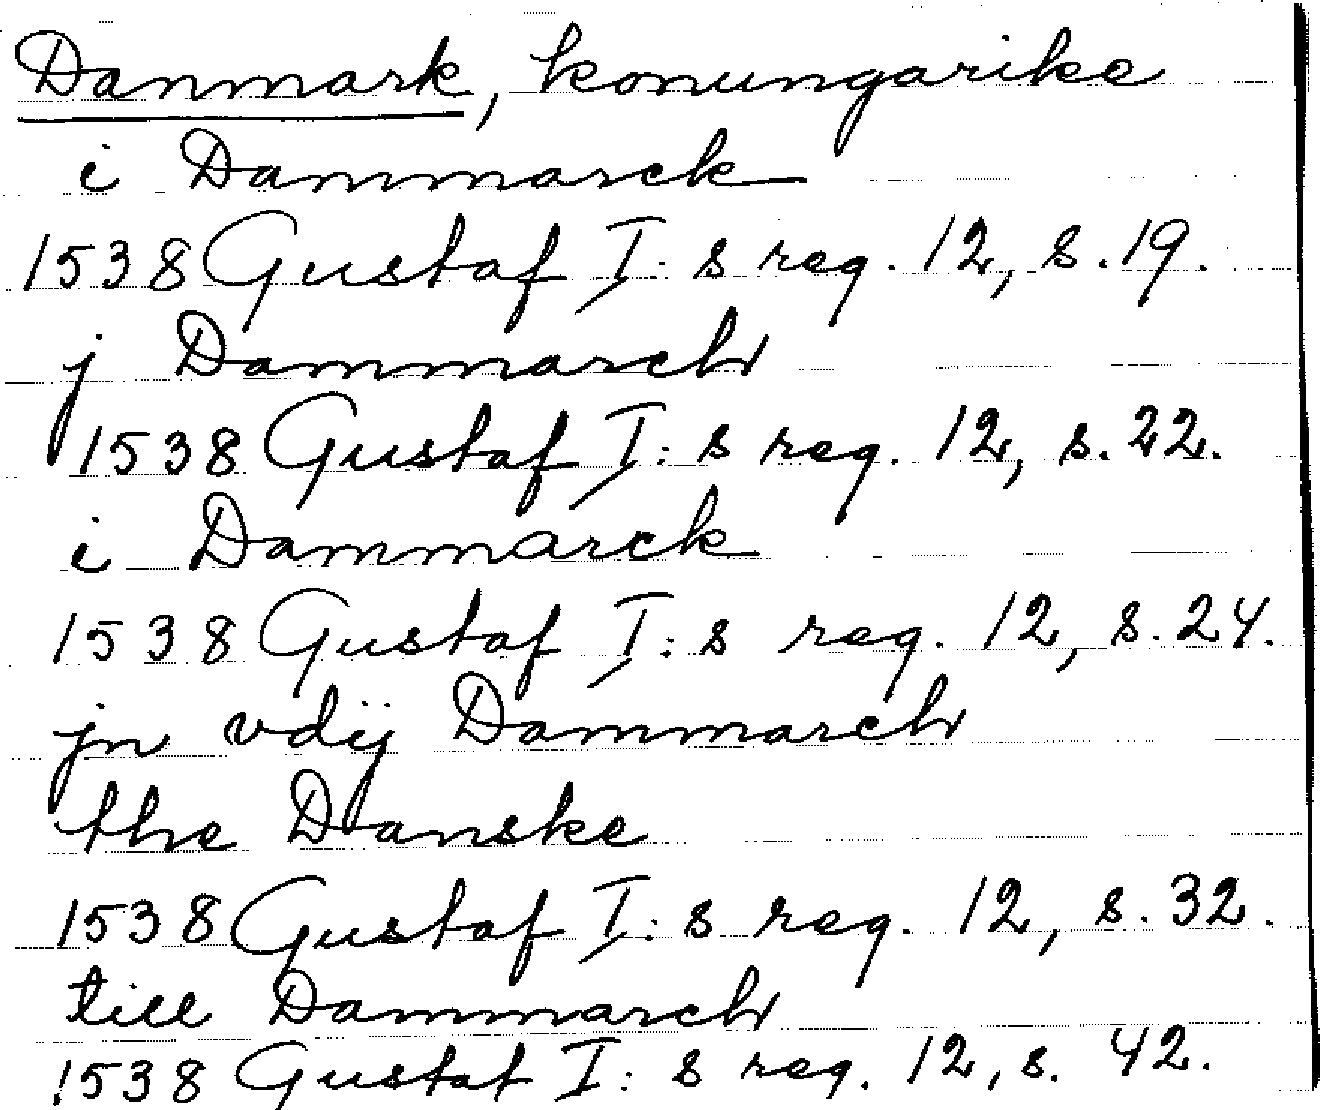 Danmark, konungarike
i Danmarck
1538 Gustaf I:s reg. 12, s. 19.
j Danmarch
1538 Gustaf I:s reg. 12, s. 22.
i Dammarck
1538 Gustaf I:s reg. 12, s. 24.
jn vdij Dammarch
the Danske
1538 Gustaf I:s reg. 12, s. 32.
till Danmarch
1538 Gustaf I:s reg. 12, s. 42.